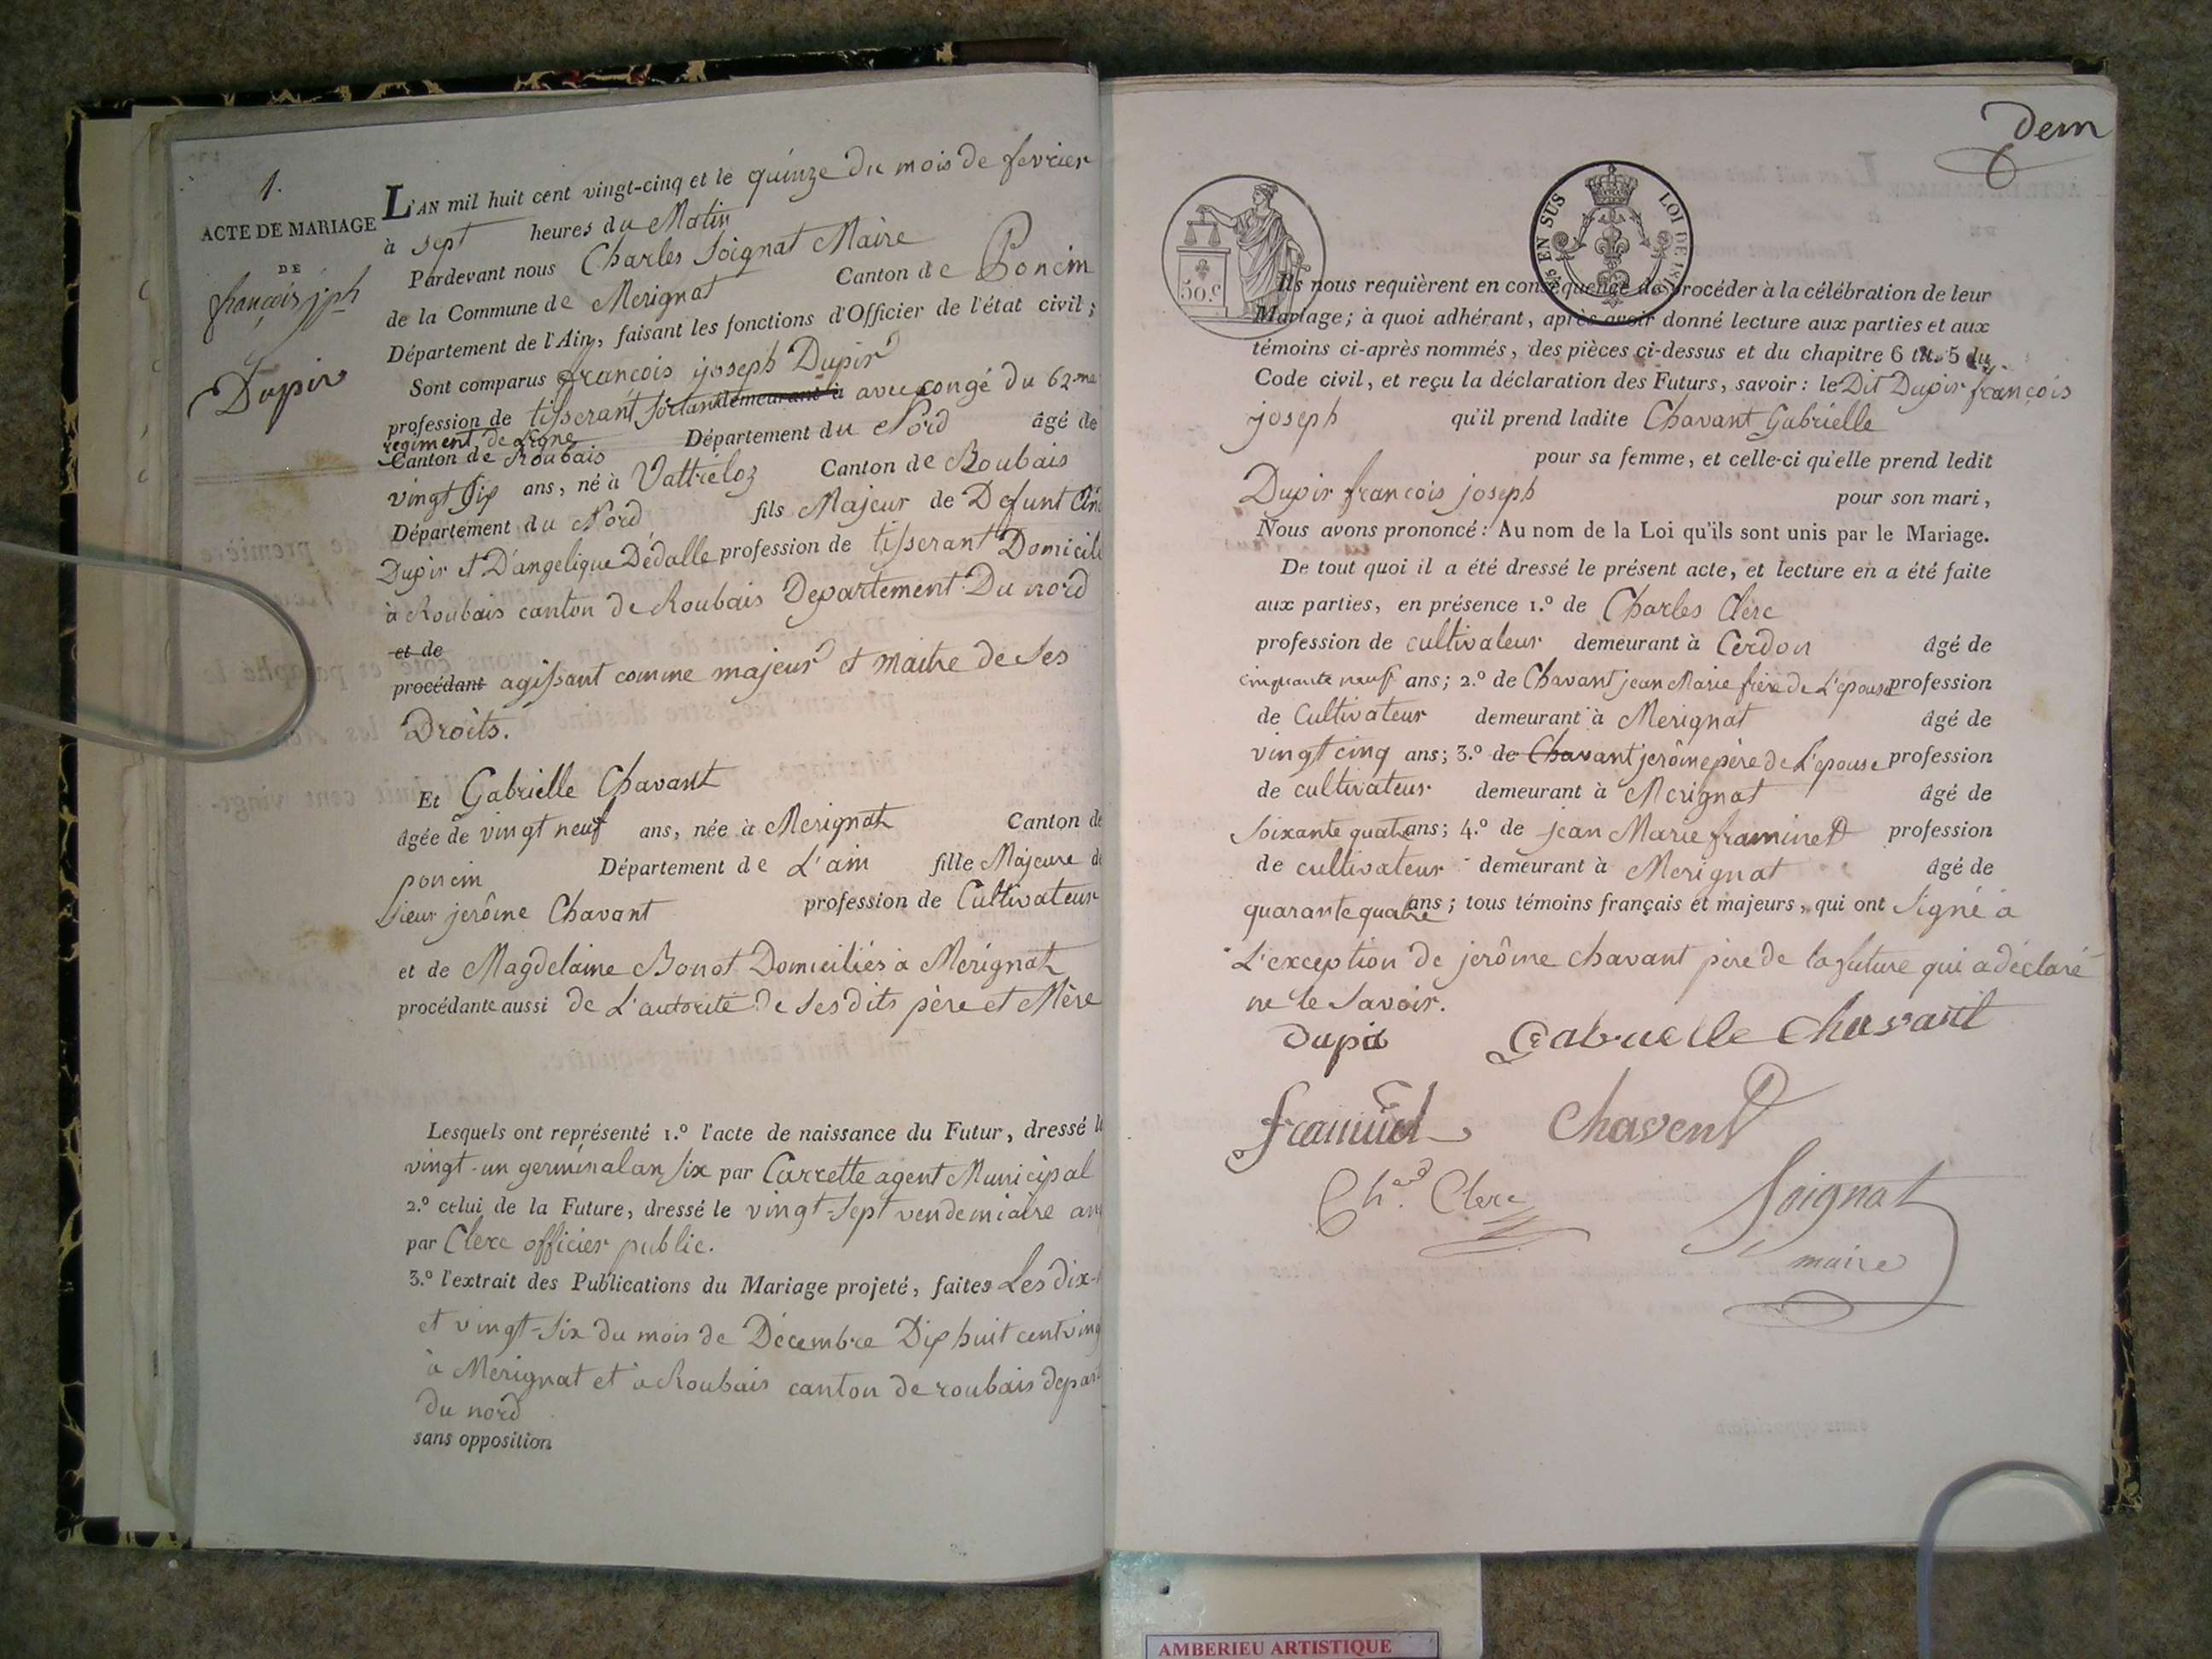 1.
ACTE DE MARIAGE
DE
françois jph
Dupir
L'AN mil huit cent vingt-cinq et le quinze du mois de fevrier
à sept heures du Matin
Pardevant nous Charles Soignat Maire
de la Commune de Merignat Canton de Poncin
Département de l'Ain, faisant les fonctions d'Officier de l'état civil;
Sont comparus françois joseph Dupir
profession de tisserant sortant demeurant à avec congé du 62me
regiment de Ligne
Canton de Roubais Département du Nord âgé de
vingt six ans, né à Vattreloz Canton de Roubais
Département du Nord fils Majeur de Defunt
Dupir et D'angelique Dédalle profession de tisserant Domicil
à Roubais canton de Roubais Departement Du nord
et de
procédant agissant comme majeur et maitre de ses
Droits.
Et Gabrielle Chavant
âgée de vingt neuf ans, née à Merignat Canton de
poncin Département de L'ain fille Majeure de
Sieur jerôme Chavant profession de Cultivateur
et de Magdelaine Bonot Domiciliés à Mérignat
procédante aussi de L'autorité de ses dits père et Mère
Lesquels ont représenté 1.º l'acte de naissance du Futur, dressé le
vingt-un germinal an six par Carrette agent Municipal
2.º celui de la Future, dressé le vingt-sept vendemiaire an
par Clerc officier public.
3.º l'extrait des Publications du Mariage projeté, faites Les dix-
et vingt-six du mois de Décembre Dix huit cent ving
à Merignat et à Roubais canton de roubais depar
du nord
sans opposition
Dem
50.c
EN SUS LOI DE
Ils nous requièrent en conséquence de procéder à la célébration de leur
Mariage; à quoi adhérant, après avoir donné lecture aux parties et aux
témoins ci-après nommés, des pièces ci-dessus et du chapitre 6 tit. 5 du
Code civil, et reçu la déclaration des Futurs, savoir: le Dit Dupir françois
joseph qu'il prend ladite Chavant Gabrielle
pour sa femme, et celle-ci qu'elle prend ledit
Dupir francois joseph pour son mari,
Nous avons prononcé: Au nom de la Loi qu'ils sont unis par le Mariage.
De tout quoi il a été dressé le présent acte, et lecture en a été faite
aux parties, en présence 1.º de Charles Clerc
profession de cultivateur demeurant à Cerdon âgé de
cinquante neuf ans; 2.º de Chavant jean Marie frère de L'épouse profession
de Cultivateur demeurant à Merignat âgé de
vingt cinq ans; 3.º de Chavant jerôme père de L'epouse profession
de cultivateur demeurant à Merignat âgé de
soixante quatre ans; 4.º de jean Marie framinet profession
de cultivateur demeurant à Merignat âgé de
quarante quatre ans; tous témoins français et majeurs, qui ont signé a
L'exception de jerôme chavant père de la future qui a déclaré
ne le savoir.
Dupir Gabrielle Chavant
framinet Chavent
Ch.es Clerc Soignat
maire
AMBERIEU ARTISTIQUE